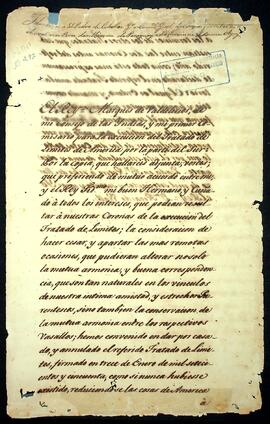 El Rey. Marques de Valdelirios, de
mi Consejo de las Indias, y mi primer Comisa-
rio para la execucion del Tratado de
Limites de America por la parte del Sur:
Por la Copia, que hallareis adjunta, vereis,
que prefiriendo de mutuo acuerdo mio,
y el Rey Fid.mo mi buen Hermano, y Cuña-
do à todos los intereses, que podrian resul-
tar à nuestras Coronas de la execucion del
Tratado de Limites; la consideracion de
hacer cesar, y apartar las mas remotas
ocasiones, que pudieran alterar no solo
la mutua armonia, y buena correspon-
cia, que son tan naturales en los vinculos
de nuestra intima amistad, y estrecho Pa-
rentesco, sino tambien la conservacion
de la mutua armonia entre los respectivos
Vasallos; hemos convenido en dar por casa-
do, y annulado el referido Tratado de Limi-
tes, firmado en trece de Enero de mil setecie-
ntos y cincuenta, como si nunca hubiese
existido, reduciendose las cosas de America
à